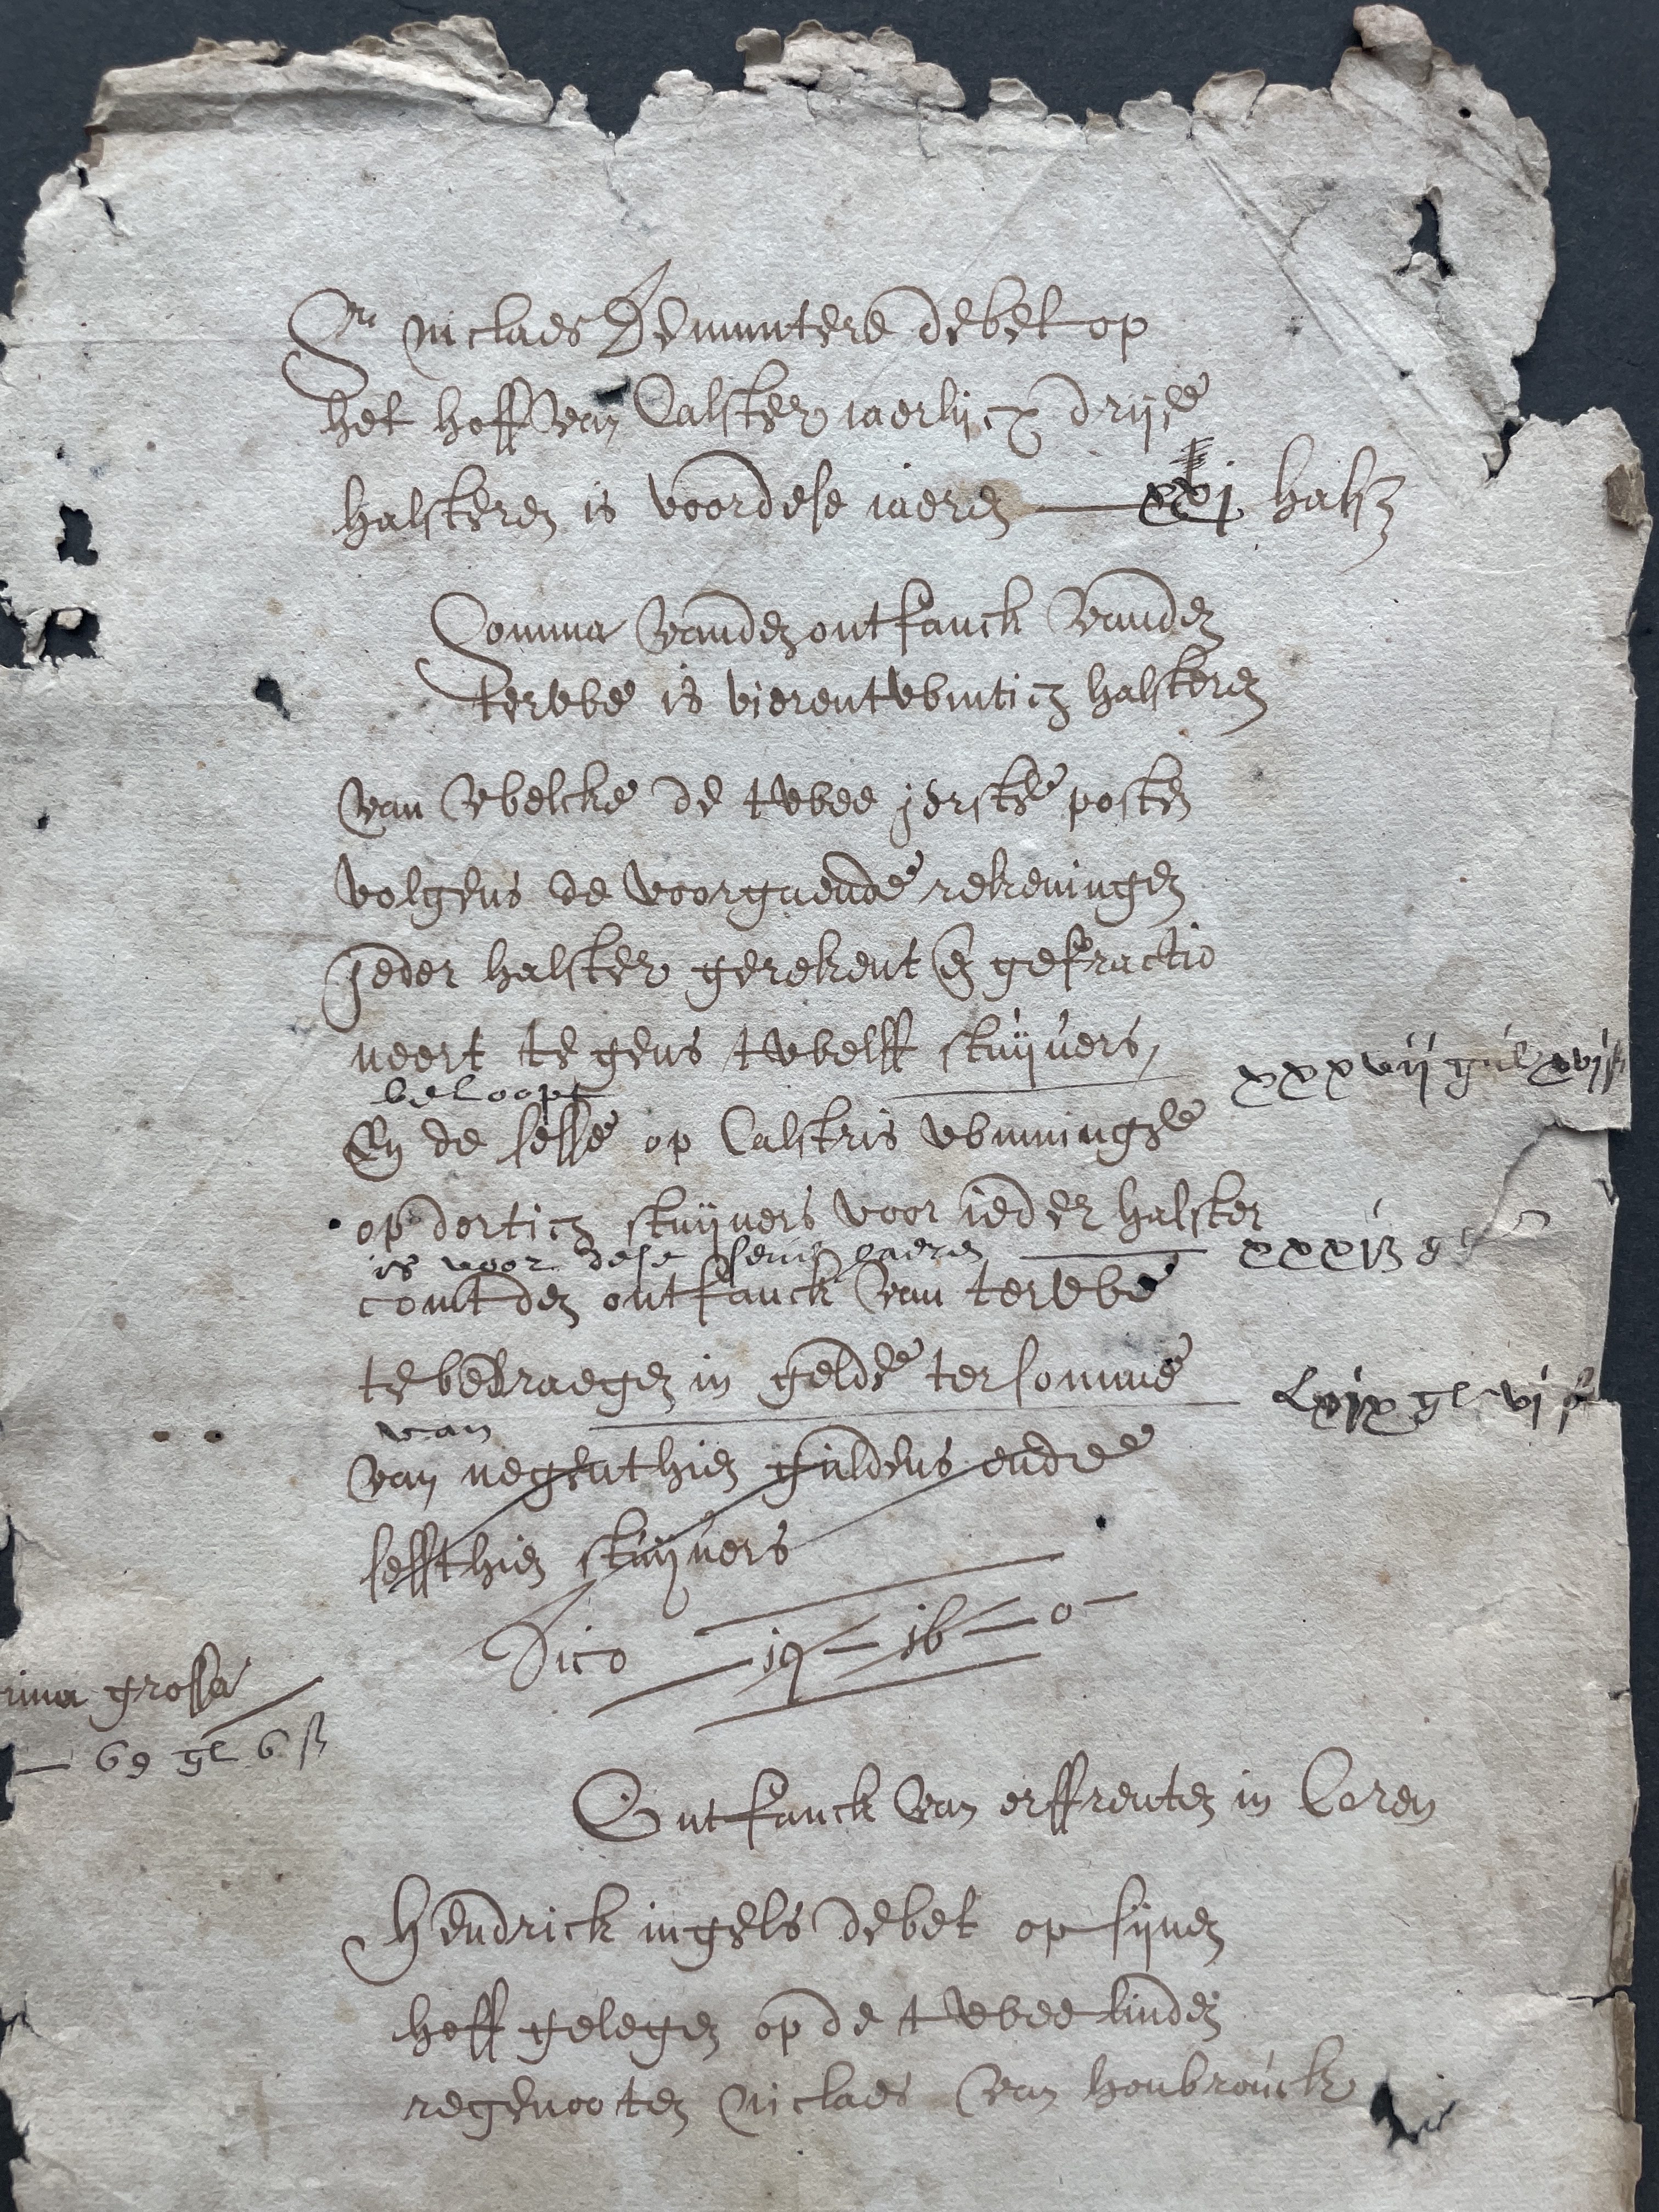 Sr niclaes Demuntere debet op
het hoff van Calster iaerlijcx drije
halsteren is voor dese iaeren — xxj halst
Somma vanden ontfanck vanden
terwe is vierentwintich halsteren
van welcke de twee ierste posten
volgens de voorgaende rekeningen
jeder halster gerekent en gefractio
neert tegens twelff stuijvers,
beloopt xxxvij gul xvj ß
En de sesse op Calstris winninghe
op dertich stuijvers voor ieder halster
is voor dese iaeren xxxi ß g
comt den ontfanck van terwe
te bedraegen in gelde ter somme
van Lxix gl vj ß
van negenthien guldens ende
sessthien stuijvers
Dico — 19 — 16 — 0 —
rima grossa
— 69 gl 6 ß
Ontfanck van erffrenten in Coren
Hendrick ingels debet op sijnen
hoff gelegen op de twee linden
regenooten niclaes van honbrouck